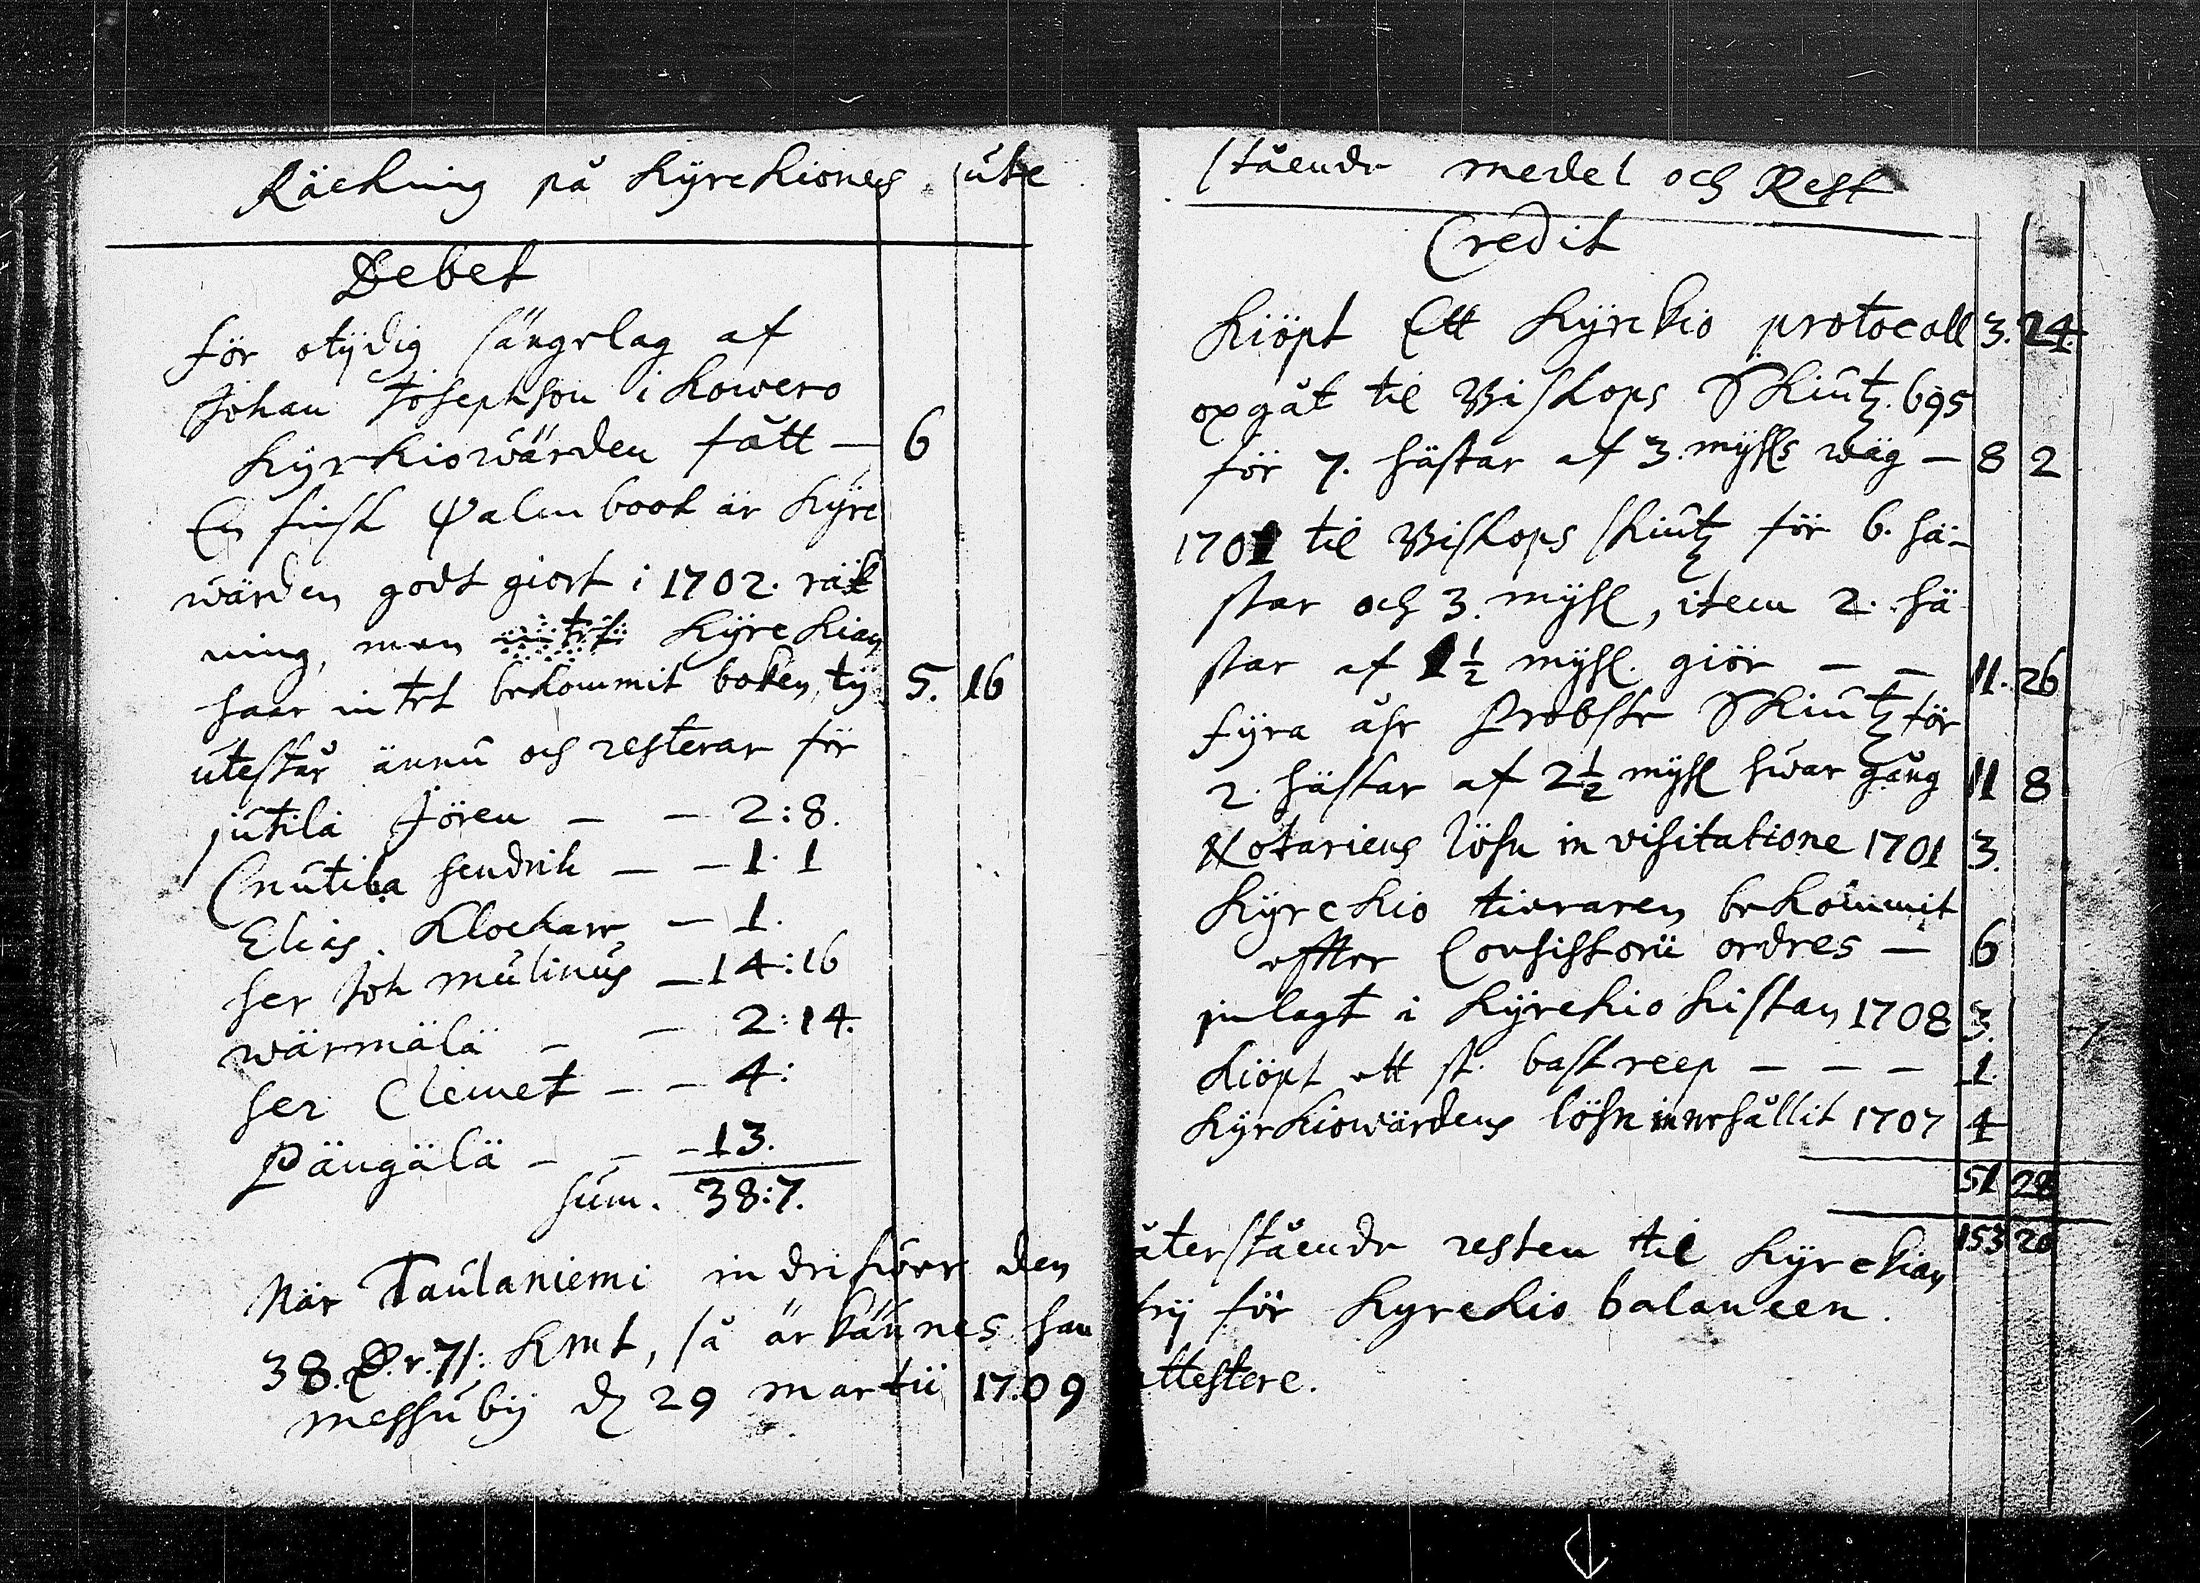 Räckning på Kyrckiones ute
Debet
för otydig sängelag af
Johan Josephson i Kowero
Kyrkiowärden fått — 6
En finsk Psalmbook är Kyrc
wärden godt giort i 1702. räk
ning, men Kyrckian
haar intet bekommit boken, ty 5. 16
utestår ännu och resterar för
jutila Jören — — 2:8.
Cnutila hendrik — — 1. 1
Elias Klockare — 1.
her Joh mulinus — 14:16
wärmälä — — 2:14.
her Clemet — — 4:
Pängälä — — — 13.
sum. 38:7.
När Taulaniemi indrifwer den
38. D.r.7/: Kmt, så ärkännes han
messuby d 29 martii 1709
stående medel och Rest
Credit
Kiöpt Ett Kyrckio protocoll 3. 24.
opgåt til Biskops Skiutz. 695
för 7. hästar af 3. myhls wäg — 8 2
1701 til Biskops skiutz för 6. hä-
star och 3. myhl, item 2. hä
star af 1 1/2 myhl. giör — — 11. 26
fyra åhr Probste Skiutz för
2. hästar af 2 1/2 myhl hwar gång 11 8
Notariens löhn in visitatione 1701 3.
Kyrckio tienaren bekommit
effter Consistorii ordres — 6
inlagt i Kyrckio Kistan 1708 3.
Kiöpt ett st. bastreep — — — 1.
Kyrkiowärdens löhn innehållit 1707 4
51 28
153 20
återstående resten til Kyrckian
frij för Kyrckio balancen.
attestere.